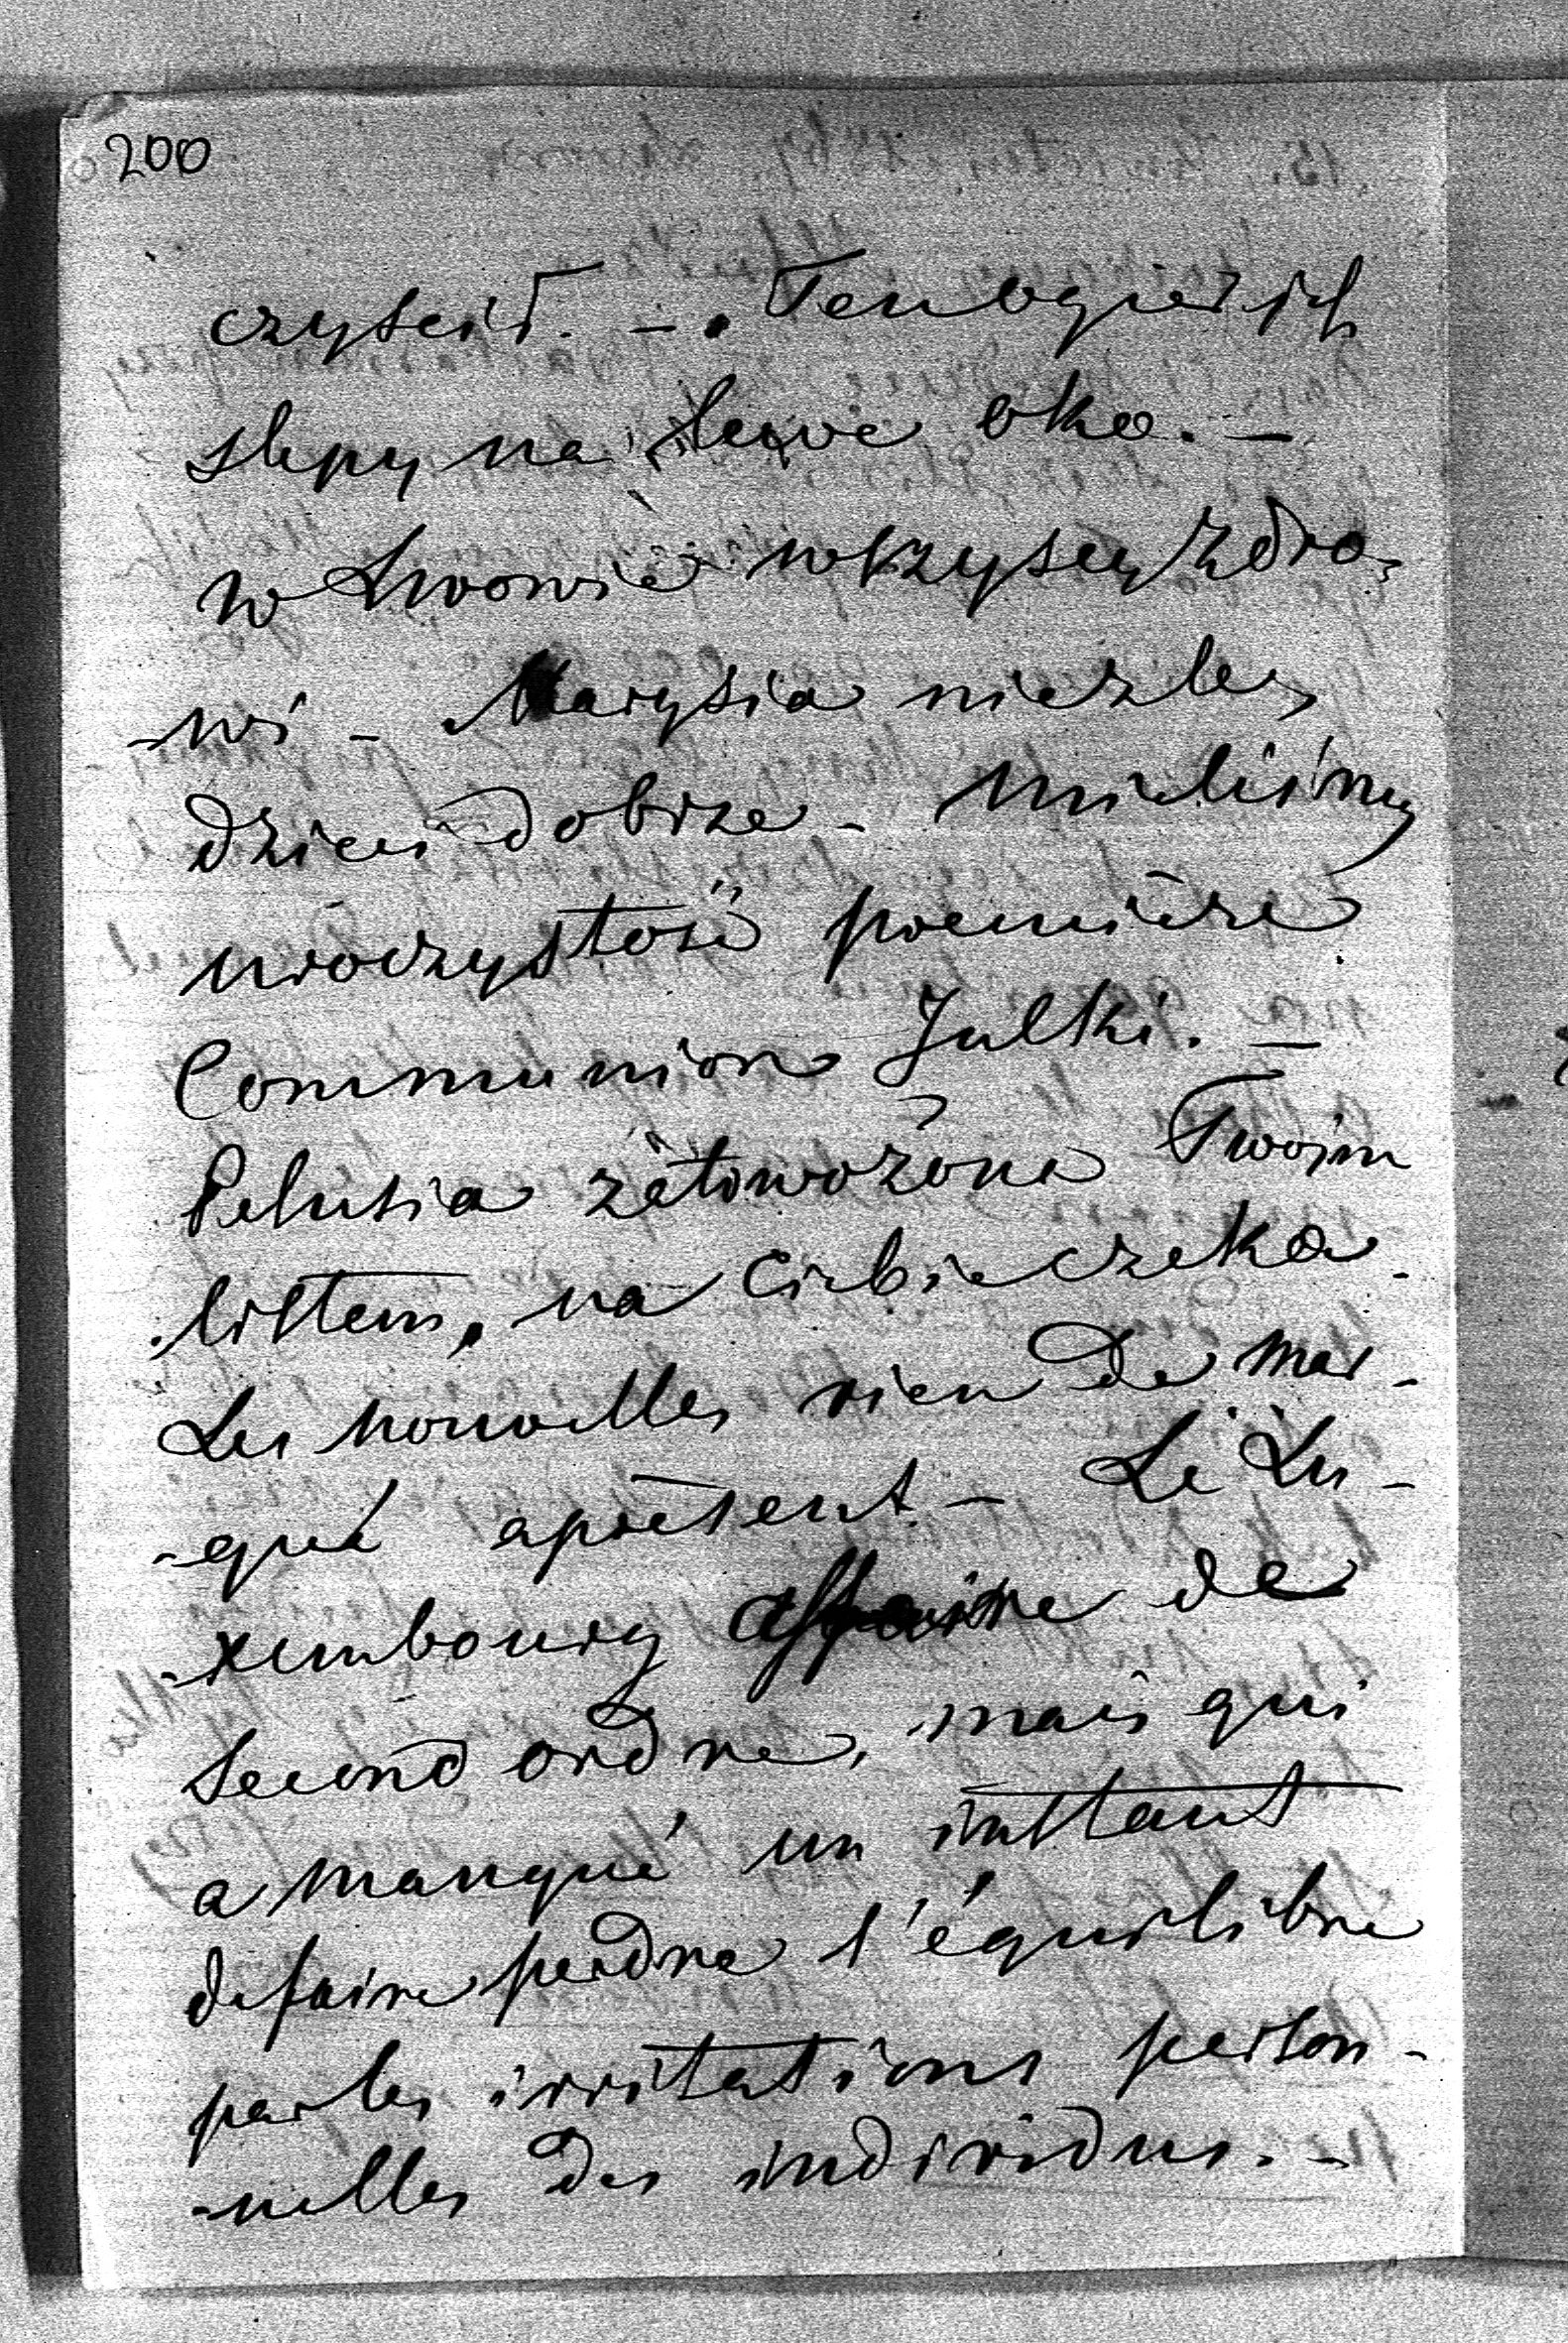 200
czyścił. – Ten ogier ich
slepy na lewe oko. –
w Lwowie wszyscy zdro-
-wi – Marysia niezle,
dzieci dobrze – mieliśmy
uroczystość première
Communion Julki. –
Pelusia zatrwożona Twoim
listem, na Ciebie czeka.
Les nouvelles rien de mar-
-qué apresent. – Le Lu-
-xembourg affaire de
second ordre, mais qui
a manqué un instant
de faire perdre l'équilibre
par les irritations person-
-nelles des individus. –